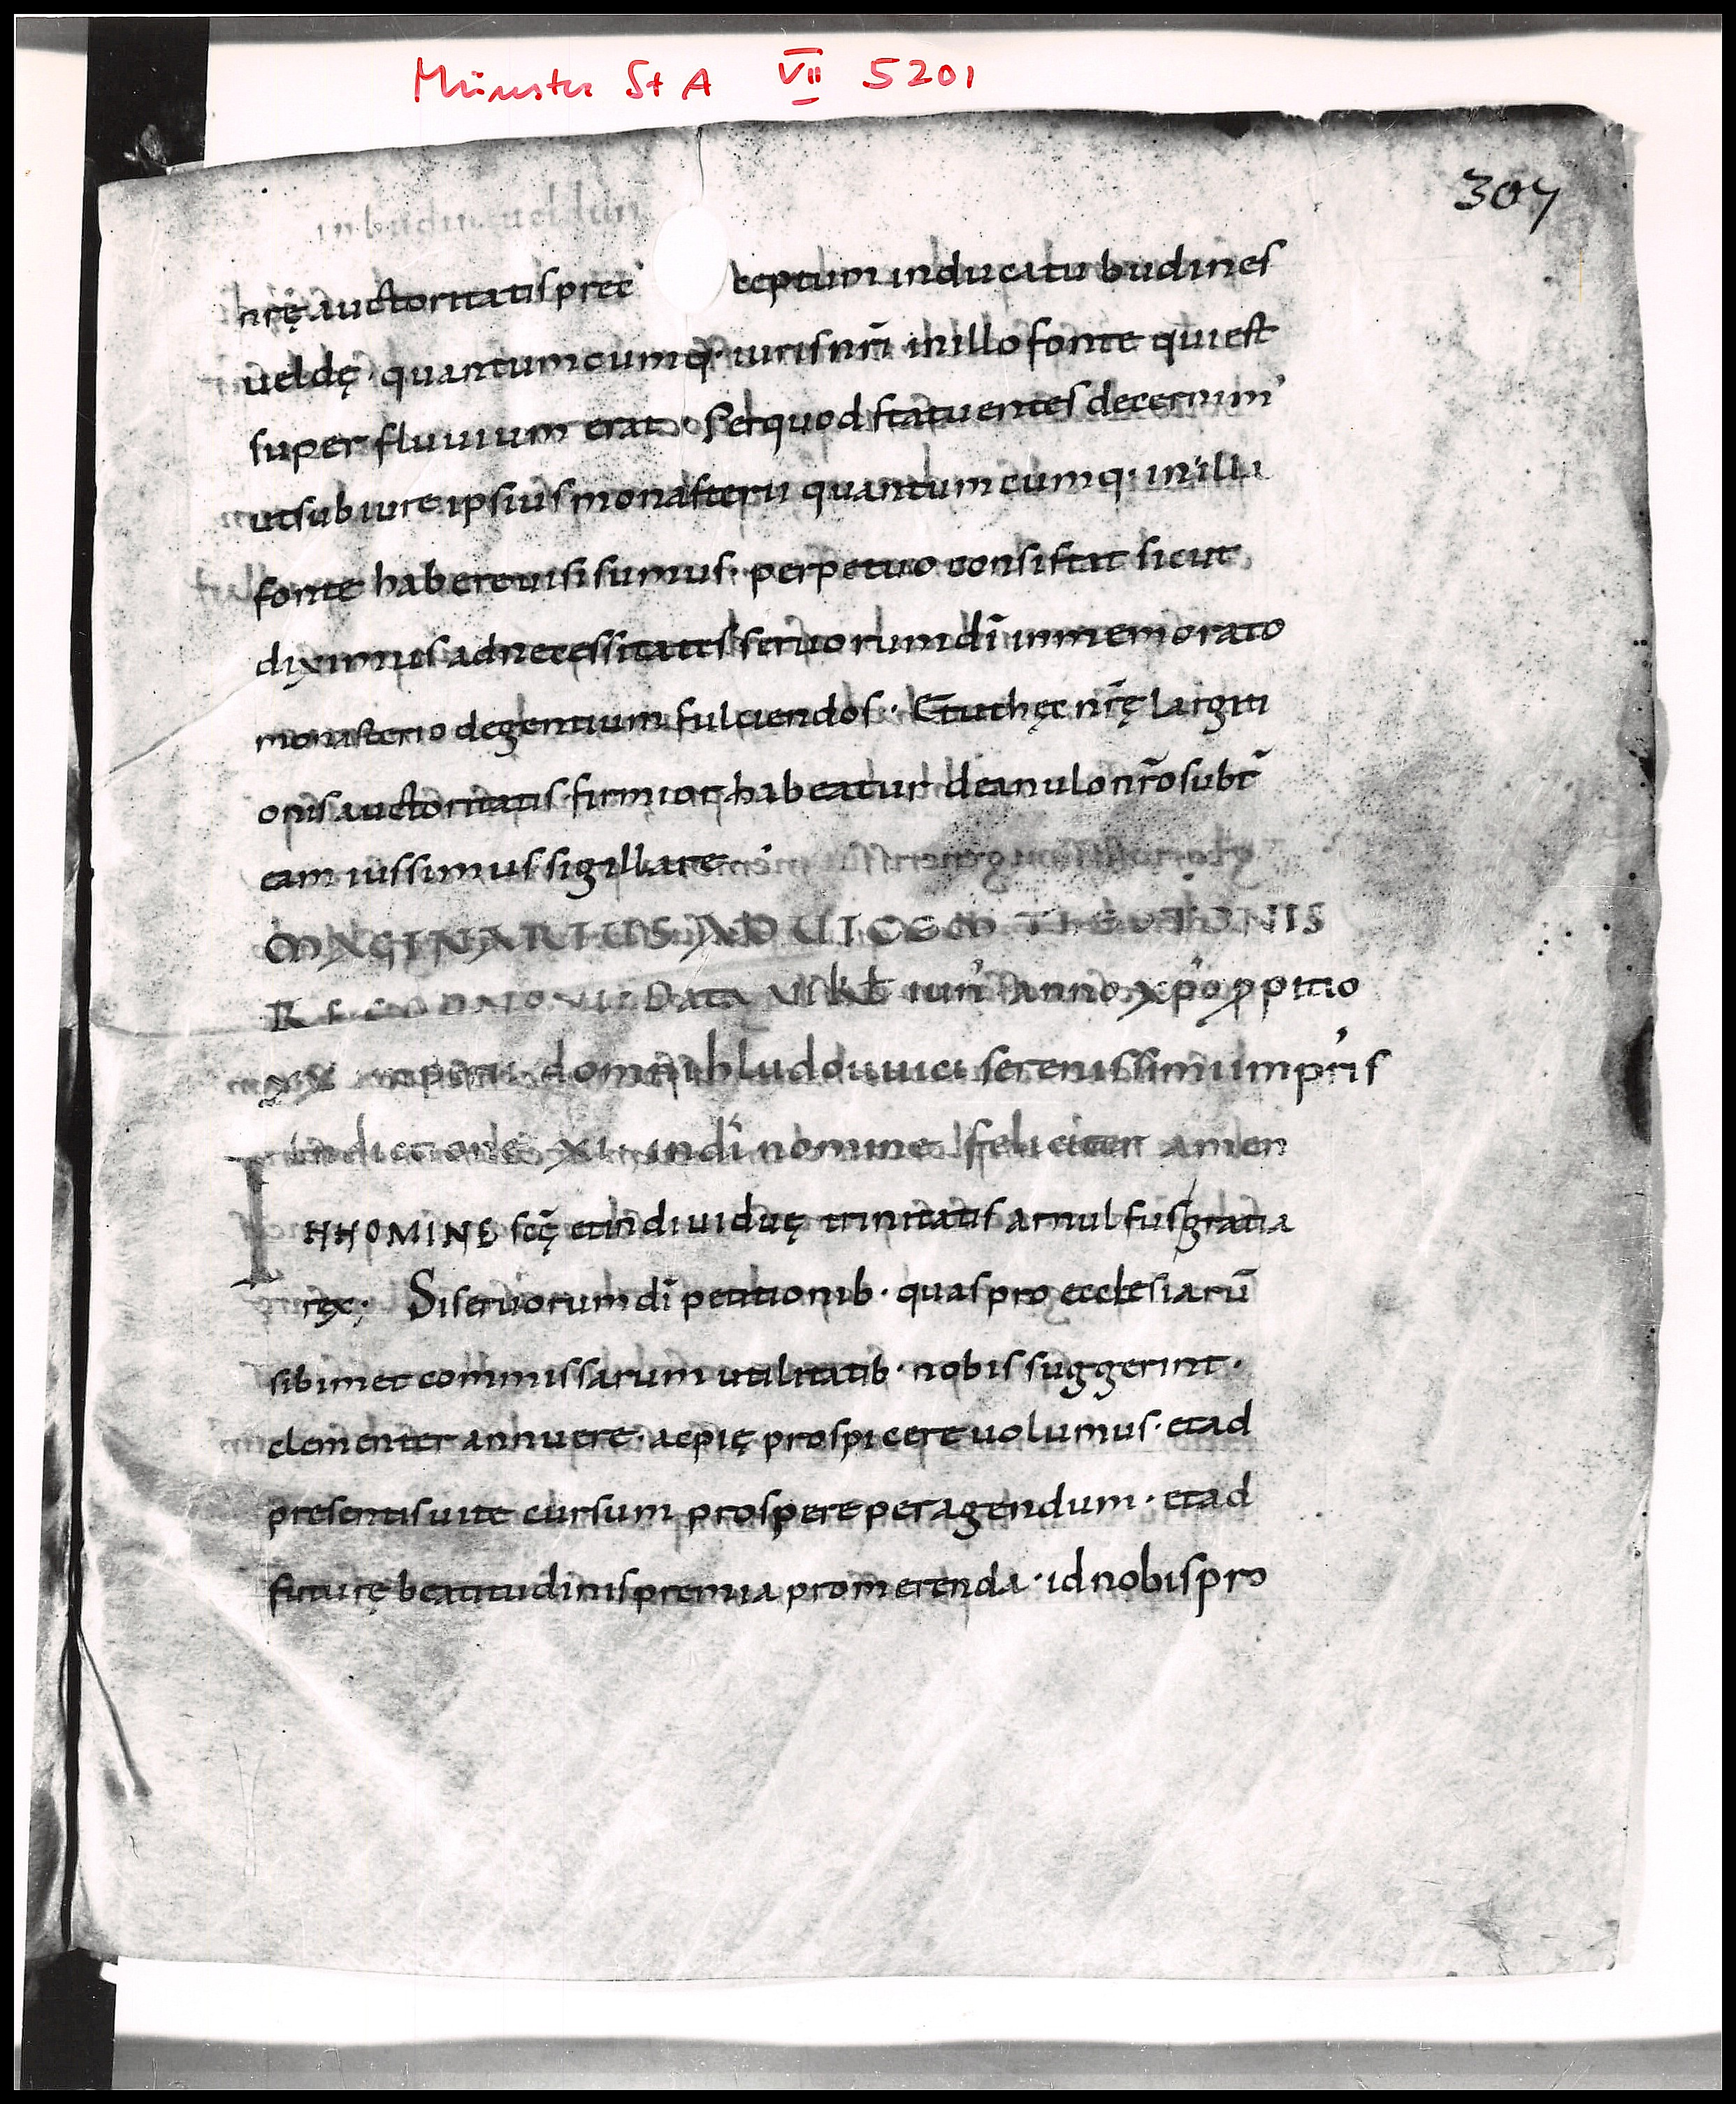 Münster St A VII 5201
307
nr̄ę auctoritatis prec ceptum in ducatu budines
ueldę · quantumcumq· iuris nr̄i in illo fonte qui est
super fluuium erat · Set quod statuentes decernim'
ut sub iure ipsius monasterii quantumcumq· in illi
fonte habere uisi sumus · perpetuo consistat sicut
diximus ad necessitates seruorum dī in memorato
monasterio degentium fulciendos · Et ut hęc nr̄ę largiti
onis auctoritatis firmior habeatur de anulo nr̄o subt̄
eam iussimus sigillare
MAGINARIUS AD UICEM THEOTONIS
Data kƚ iun' anno xp̄o ꝓpitio
xx imperii domni hludouuici serenissimi imp'ris
Indictione XI · in dī nomine feliciter amen
IN NOMINE scę̄ et indiuiduę trinitatis arnulfus gratia
rex; Si seruorum dī petitionib· quas pro ecclesiarū
sibimet commissarum utilitatib· nobis suggerint ·
clementer annuere · ac pię prospicere uolumus · et ad
presentis uite cursum prospere peragendum · et ad
futurę beatitudinis premia promerenda · id nobis pro